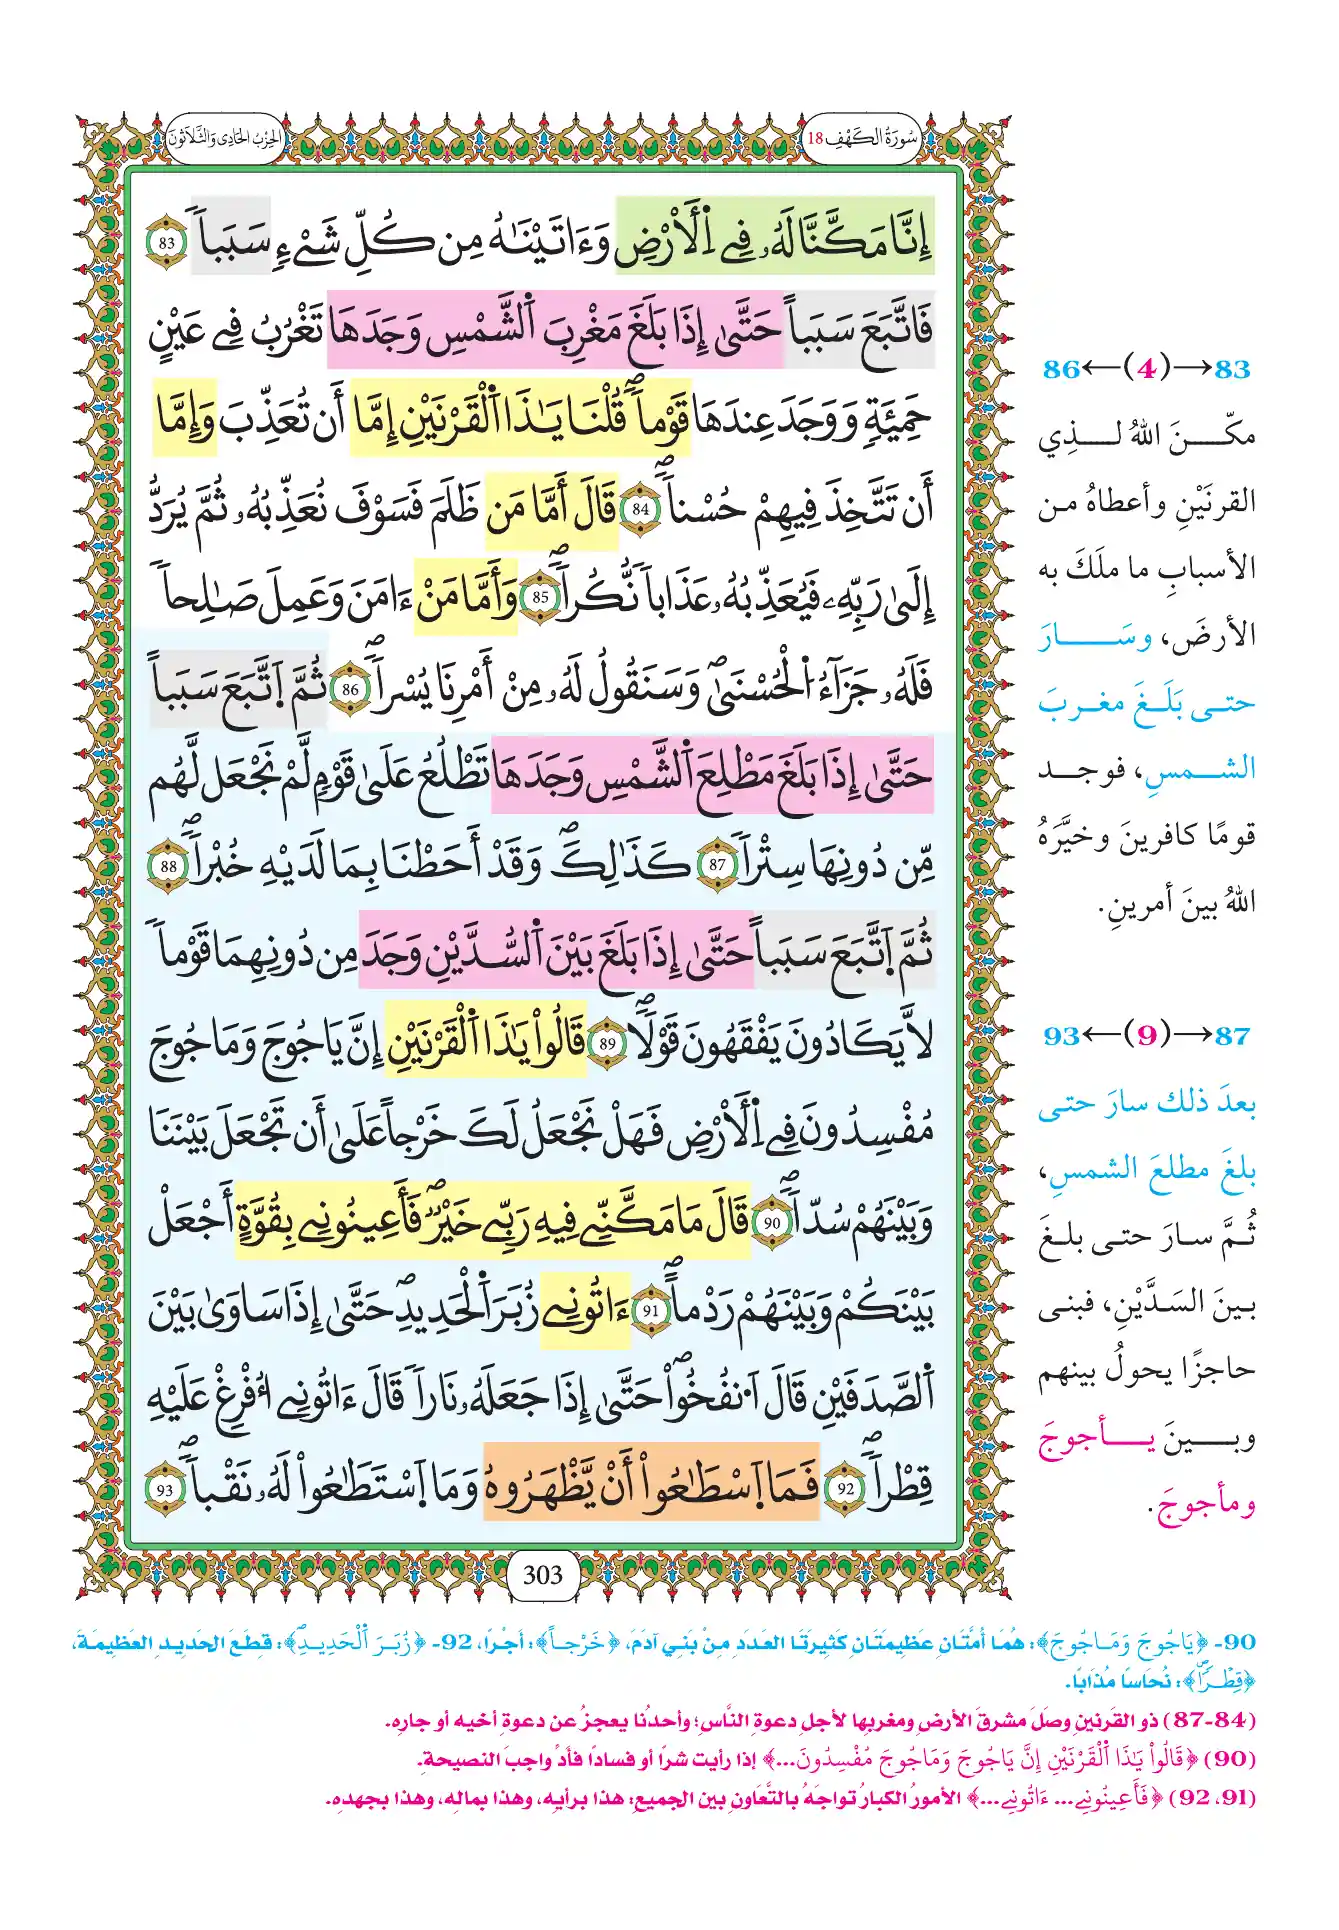 سُورَةُ الكَهْفِ 18
الحِزْبُ الحَادِي وَالثَّلَاثُونَ
إِنَّا مَكَّنَّا لَهُۥ فِے اِ۬لَارْضِ وَءَاتَيْنَٰهُ مِن كُلِّ شَےْءٖ سَبَباٗ 83
فَاتَّبَعَ سَبَباً حَتَّىٰ إِذَا بَلَغَ مَغْرِبَ اَ۬لشَّمْسِ وَجَدَهَا تَغْرُبُ فِے عَيْنٍ
حَمِئَةٖ وَوَجَدَ عِندَهَا قَوْماٗۖ قُلْنَا يَٰذَا اَ۬لْقَرْنَيْنِ إِمَّا أَن تُعَذِّبَ وَإِمَّا
أَن تَتَّخِذَ فِيهِمْ حُسْناٗۖ 84 قَالَ أَمَّا مَن ظَلَمَ فَسَوْفَ نُعَذِّبُهُۥ ثُمَّ يُرَدُّ
إِلَىٰ رَبِّهِۦ فَيُعَذِّبُهُۥ عَذَاباٗ نُّكُراٗۖ 85 وَأَمَّا مَنْ ءَامَنَ وَعَمِلَ صَٰلِحاٗ
فَلَهُۥ جَزَآءُ اُ۬لْحُسْنَىٰۖ وَسَنَقُولُ لَهُۥ مِنْ أَمْرِنَا يُسْراٗۖ 86 ثُمَّ اَ۪تَّبَعَ سَبَباً
حَتَّىٰ إِذَا بَلَغَ مَطْلِعَ اَ۬لشَّمْسِ وَجَدَهَا تَطْلُعُ عَلَىٰ قَوْمٖ لَّمْ نَجْعَل لَّهُم
مِّن دُونِهَا سِتْراٗۖ 87 كَذَٰلِكَۖ وَقَدْ أَحَطْنَا بِمَا لَدَيْهِ خُبْراٗۖ 88
ثُمَّ اَ۪تَّبَعَ سَبَباً حَتَّىٰ إِذَا بَلَغَ بَيْنَ اَ۬لسُّدَّيْنِ وَجَدَ مِن دُونِهِمَا قَوْماٗ
لَّا يَكَادُونَ يَفْقَهُونَ قَوْلاٗۖ 89 قَالُواْ يَٰذَا اَ۬لْقَرْنَيْنِ إِنَّ يَاجُوجَ وَمَاجُوجَ
مُفْسِدُونَ فِے اِ۬لَارْضِ فَهَلْ نَجْعَلُ لَكَ خَرْجاً عَلَىٰ أَن تَجْعَلَ بَيْنَنَا
وَبَيْنَهُمْ سُدّاٗۖ 90 قَالَ مَا مَكَّنِّے فِيهِ رَبِّے خَيْرٞۖ فَأَعِينُونِے بِقُوَّةٍ اَجْعَلْ
بَيْنَكُمْ وَبَيْنَهُمْ رَدْماًۖ 91 ءَاتُونِے زُبَرَ اَ۬لْحَدِيدِۖ حَتَّىٰ إِذَا سَاوَىٰ بَيْنَ
اَ۬لصَّدَفَيْنِ قَالَ اَ۟نفُخُواْۖ حَتَّىٰ إِذَا جَعَلَهُۥ نَاراٗ قَالَ ءَاتُونِے أُفْرِغْ عَلَيْهِ
قِطْراٗۖ 92 فَمَا اَ۪سْطَٰعُواْ أَنْ يَّظْهَرُوهُ وَمَا اَ۪سْتَطَٰعُواْ لَهُۥ نَقْباٗۖ 93
83→(4)←86
مكّنَ اللهُ لذِي
القرنَيْنِ وأعطاهُ من
الأسبابِ ما ملَكَ به
الأرضَ، وسَارَ
حتى بَلَغَ مغربَ
الشمسِ، فوجد
قومًا كافرينَ وخيَّرَهُ
اللهُ بينَ أمرينِ.
87→(9)←93
بعدَ ذلك سارَ حتى
بلغَ مطلعَ الشمسِ،
ثُمَّ سارَ حتى بلغَ
بينَ السَدَّيْنِ، فبنى
حاجزًا يحولُ بينهم
وبينَ يأجوجَ
ومأجوجَ.
303
90- ﴿يَاجُوجَ وَمَاجُوجَ﴾: هُمَا أُمَّتَانِ عَظِيمَتَانِ كَثِيرَتَا العَدَدِ مِنْ بَنِي آدَمَ، ﴿خَرْجاً﴾: أجْرًا، 92- ﴿زُبَرَ اَ۬لْحَدِيدِۖ﴾: قِطَعَ الحَدِيدِ العَظِيمَةَ،
﴿قِطْراٗۖ﴾: نُحَاسًا مُذَابًا.
(84-87) ذو القَرنينِ وصَلَ مشرقَ الأرضِ ومغربِها لأجلِ دعوةِ النَّاسِ؛ وأحدُنا يعجزُ عن دعوةِ أخيه أو جارِه.
(90) ﴿قَالُواْ يَٰذَا اَ۬لْقَرْنَيْنِ إِنَّ يَاجُوجَ وَمَاجُوجَ مُفْسِدُونَ...﴾ إذا رأيت شرًا أو فسادًا فأدِّ واجبَ النصيحةِ.
(91، 92) ﴿فَأَعِينُونِے... ءَاتُونِے...﴾ الأمورُ الكبارُ تواجَهُ بالتَّعاونِ بين الجميعِ: هذا برأيِه، وهذا بمالِه، وهذا بجهدِهِ.